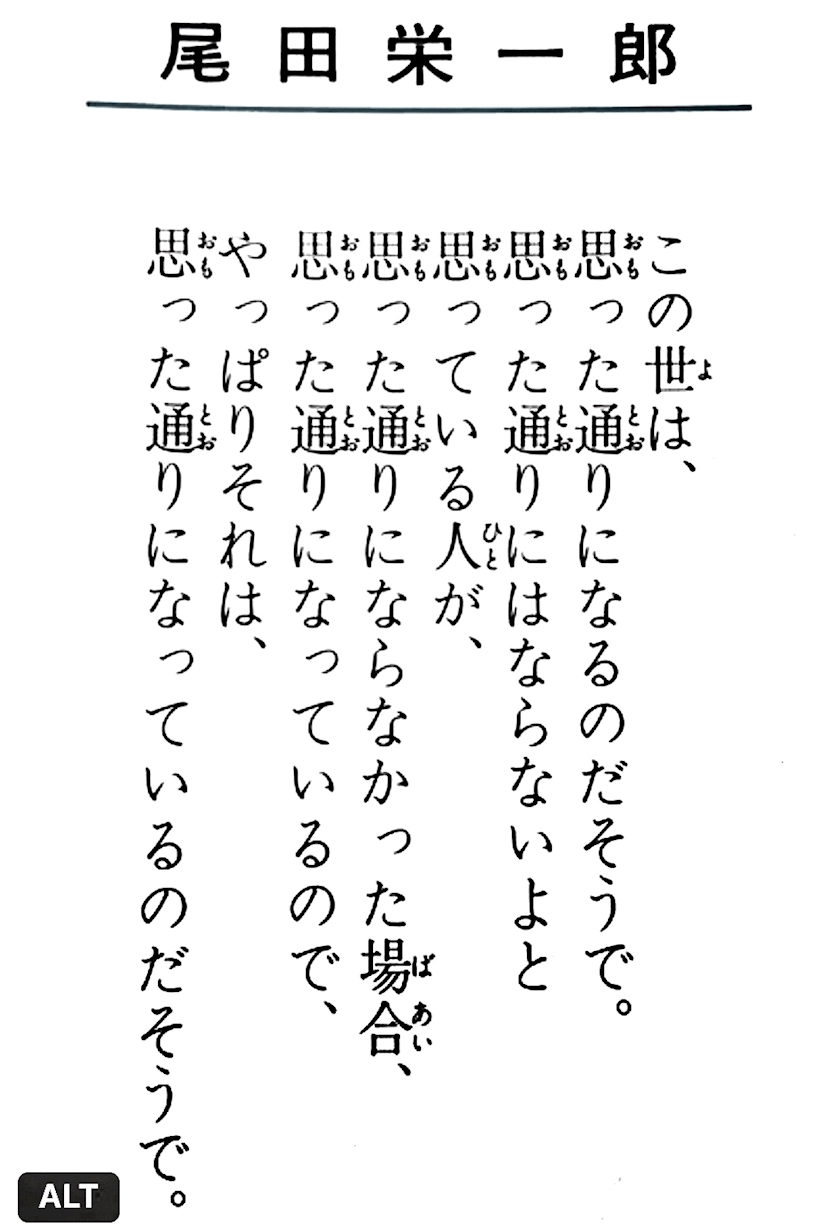 尾田栄一郎
この世は、
思った通りになるのだそうで。
思った通りにはならないよと
思っている人が、
思った通りにならなかった場合、
思った通りになっているので、
やっぱりそれは、
思った通りになっているのだそうで。
ALT